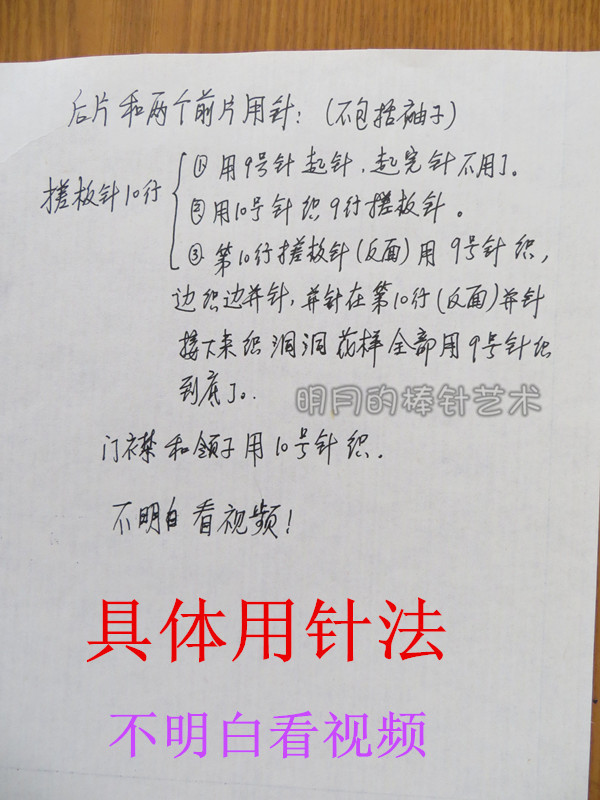 后片和两个前片用针：(不包括袖子)
搓板针10行
① 用9号针起针，起完针不用了。
② 用10号针织9行搓板针。
③ 第10行搓板针(反面)用9号针织，
边织边并针，并针在第10行(反面)并针
接下来织洞洞花样全部用9号针织
到底了。
明月的棒针艺术
门衣襟和领子用10号针织.
不明白看视频！
具体用针法
不明白看视频